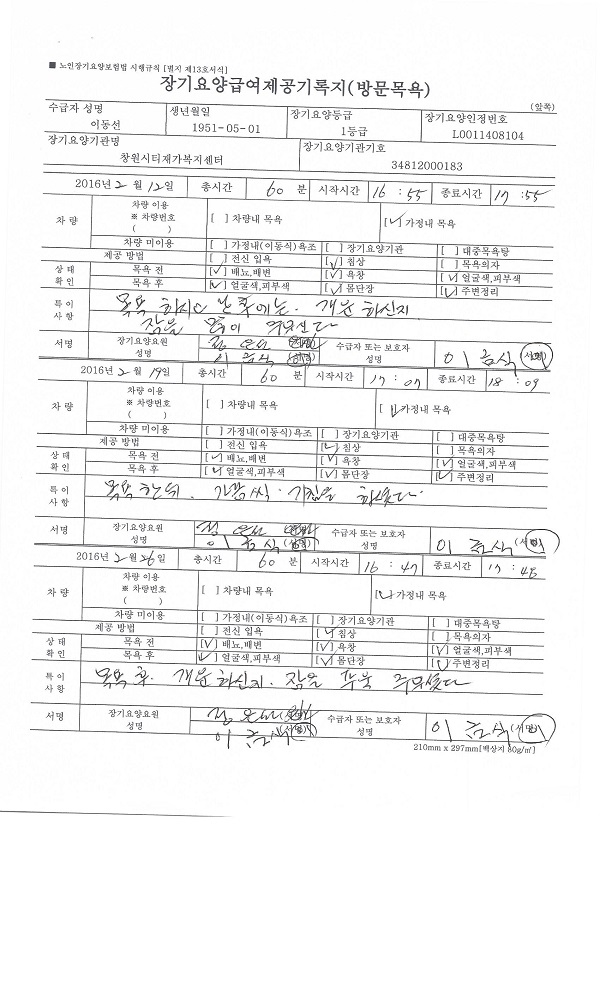 ■ 노인장기요양보험법 시행규칙 [별지 제13호서식]
장기요양급여제공기록지(방문목욕)
(앞쪽)
수급자 성명 생년월일 장기요양등급 장기요양인정번호
이동선 1951-05-01 1등급 L0011408104
장기요양기관명 장기요양기관기호
창원시티재가복지센터 34812000183
2016년 2 월 12일 총시간 60 분 시작시간 16 : 55 종료시간 17 : 55
차 량 차량 이용 ※ 차량번호 ( ) [ ] 차량내 목욕 [√] 가정내 목욕
차량 미이용 [ ] 가정내(이동식)욕조 [ ] 장기요양기관 [ ] 대중목욕탕
제공 방법 [ ] 전신 입욕 [√] 침상 [ ] 목욕의자
상 태 확 인 목욕 전 [√] 배뇨,배변 [√] 욕창 [√] 얼굴색,피부색
목욕 후 [√] 얼굴색,피부색 [√] 몸단장 [√] 주변정리
특 이 사 항 목욕 하시고 난 후에는. 개운 하신지
잠을 많이 주무신다
서명 장기요양요원 성명 수급자 또는 보호자 성명 이 금식 (서명)
이 금식 (서명)
2016년 2 월 19일 총시간 60 분 시작시간 17 : 07 종료시간 18 : 09
차 량 차량 이용 ※ 차량번호 ( ) [ ] 차량내 목욕 [√] 가정내 목욕
차량 미이용 [ ] 가정내(이동식)욕조 [ ] 장기요양기관 [ ] 대중목욕탕
제공 방법 [ ] 전신 입욕 [√] 침상 [ ] 목욕의자
상 태 확 인 목욕 전 [√] 배뇨,배변 [√] 욕창 [√] 얼굴색,피부색
목욕 후 [√] 얼굴색,피부색 [√] 몸단장 [√] 주변정리
특 이 사 항 목욕 한뒤. 가끔씩. 기침을 하셨다.
서명 장기요양요원 성명 수급자 또는 보호자 성명 이 금식 (서명)
이 금식 (서명)
2016년 2 월 26일 총시간 60 분 시작시간 16 : 47 종료시간 17 : 48
차 량 차량 이용 ※ 차량번호 ( ) [ ] 차량내 목욕 [√] 가정내 목욕
차량 미이용 [ ] 가정내(이동식)욕조 [ ] 장기요양기관 [ ] 대중목욕탕
제공 방법 [ ] 전신 입욕 [√] 침상 [ ] 목욕의자
상 태 확 인 목욕 전 [√] 배뇨,배변 [√] 욕창 [√] 얼굴색,피부색
목욕 후 [√] 얼굴색,피부색 [√] 몸단장 [√] 주변정리
특 이 사 항 목욕 후. 개운 하신지. 잠을 푹 주무셨다
서명 장기요양요원 성명 수급자 또는 보호자 성명 이 금식 (서명)
이 금식 (서명)
210mm x 297mm[백상지 80g/㎡]